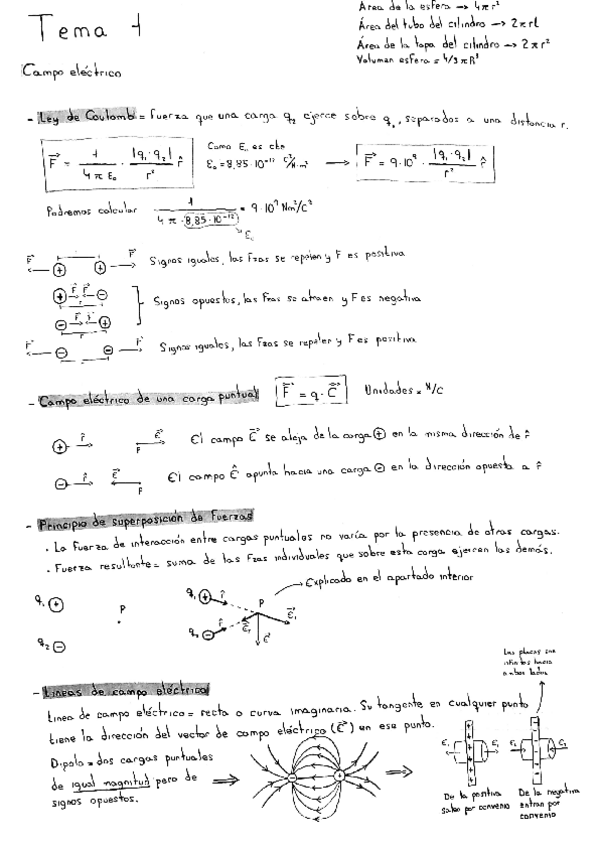 Tema 1
Área de la esfera → 4πr²
Área del tubo del cilindro → 2πrL
Área de la tapa del cilindro → 2πr²
Volumen esfera = 4/3πR³
Campo eléctrico
- Ley de Coulomb = Fuerza que una carga q₂ ejerce sobre q₁, separados a una distancia r.
F = 1/(4πε₀) · |q₁·q₂|/r² r̂
Como ε₀ es cte
ε₀ = 8,85·10⁻¹² C²/N·m²
→ F = 9·10⁹ · |q₁·q₂|/r² r̂
Podremos calcular 1/(4π·8,85·10⁻¹²) = 9·10⁹ Nm²/C²
ε₀
F + + F Signos iguales, las Fzas se repelen y F es positiva
+ F F -
- F F + Signos opuestos, las Fzas se atraen y F es negativa
F - - F Signos iguales, las Fzas se repelen y F es positiva
- Campo eléctrico de una carga puntual F = q·E Unidades = N/C
+ r̂ E P El campo E se aleja de la carga + en la misma dirección de r̂
- r̂ E P El campo E apunta hacia una carga - en la dirección opuesta a r̂
- Principio de superposición de Fuerzas
· La Fuerza de interacción entre cargas puntuales no varía por la presencia de otras cargas.
· Fuerza resultante = suma de las Fzas individuales que sobre esta carga ejercen las demás.
Explicado en el apartado interior
q₁ + P q₁ + r̂ P E₁
q₂ - q₂ - r̂ E₂ E
Las placas son
infinitas hacia
ambos lados
- Líneas de campo eléctrico
Línea de campo eléctrico = recta o curva imaginaria. Su tangente en cualquier punto
tiene la dirección del vector de campo eléctrico (E) en ese punto.
Dipolo = dos cargas puntuales
de igual magnitud pero de
signos opuestos.
E₁ E₂ E₂ E₁
De la positiva
salen por convenio
De la negativa
entran por
convenio